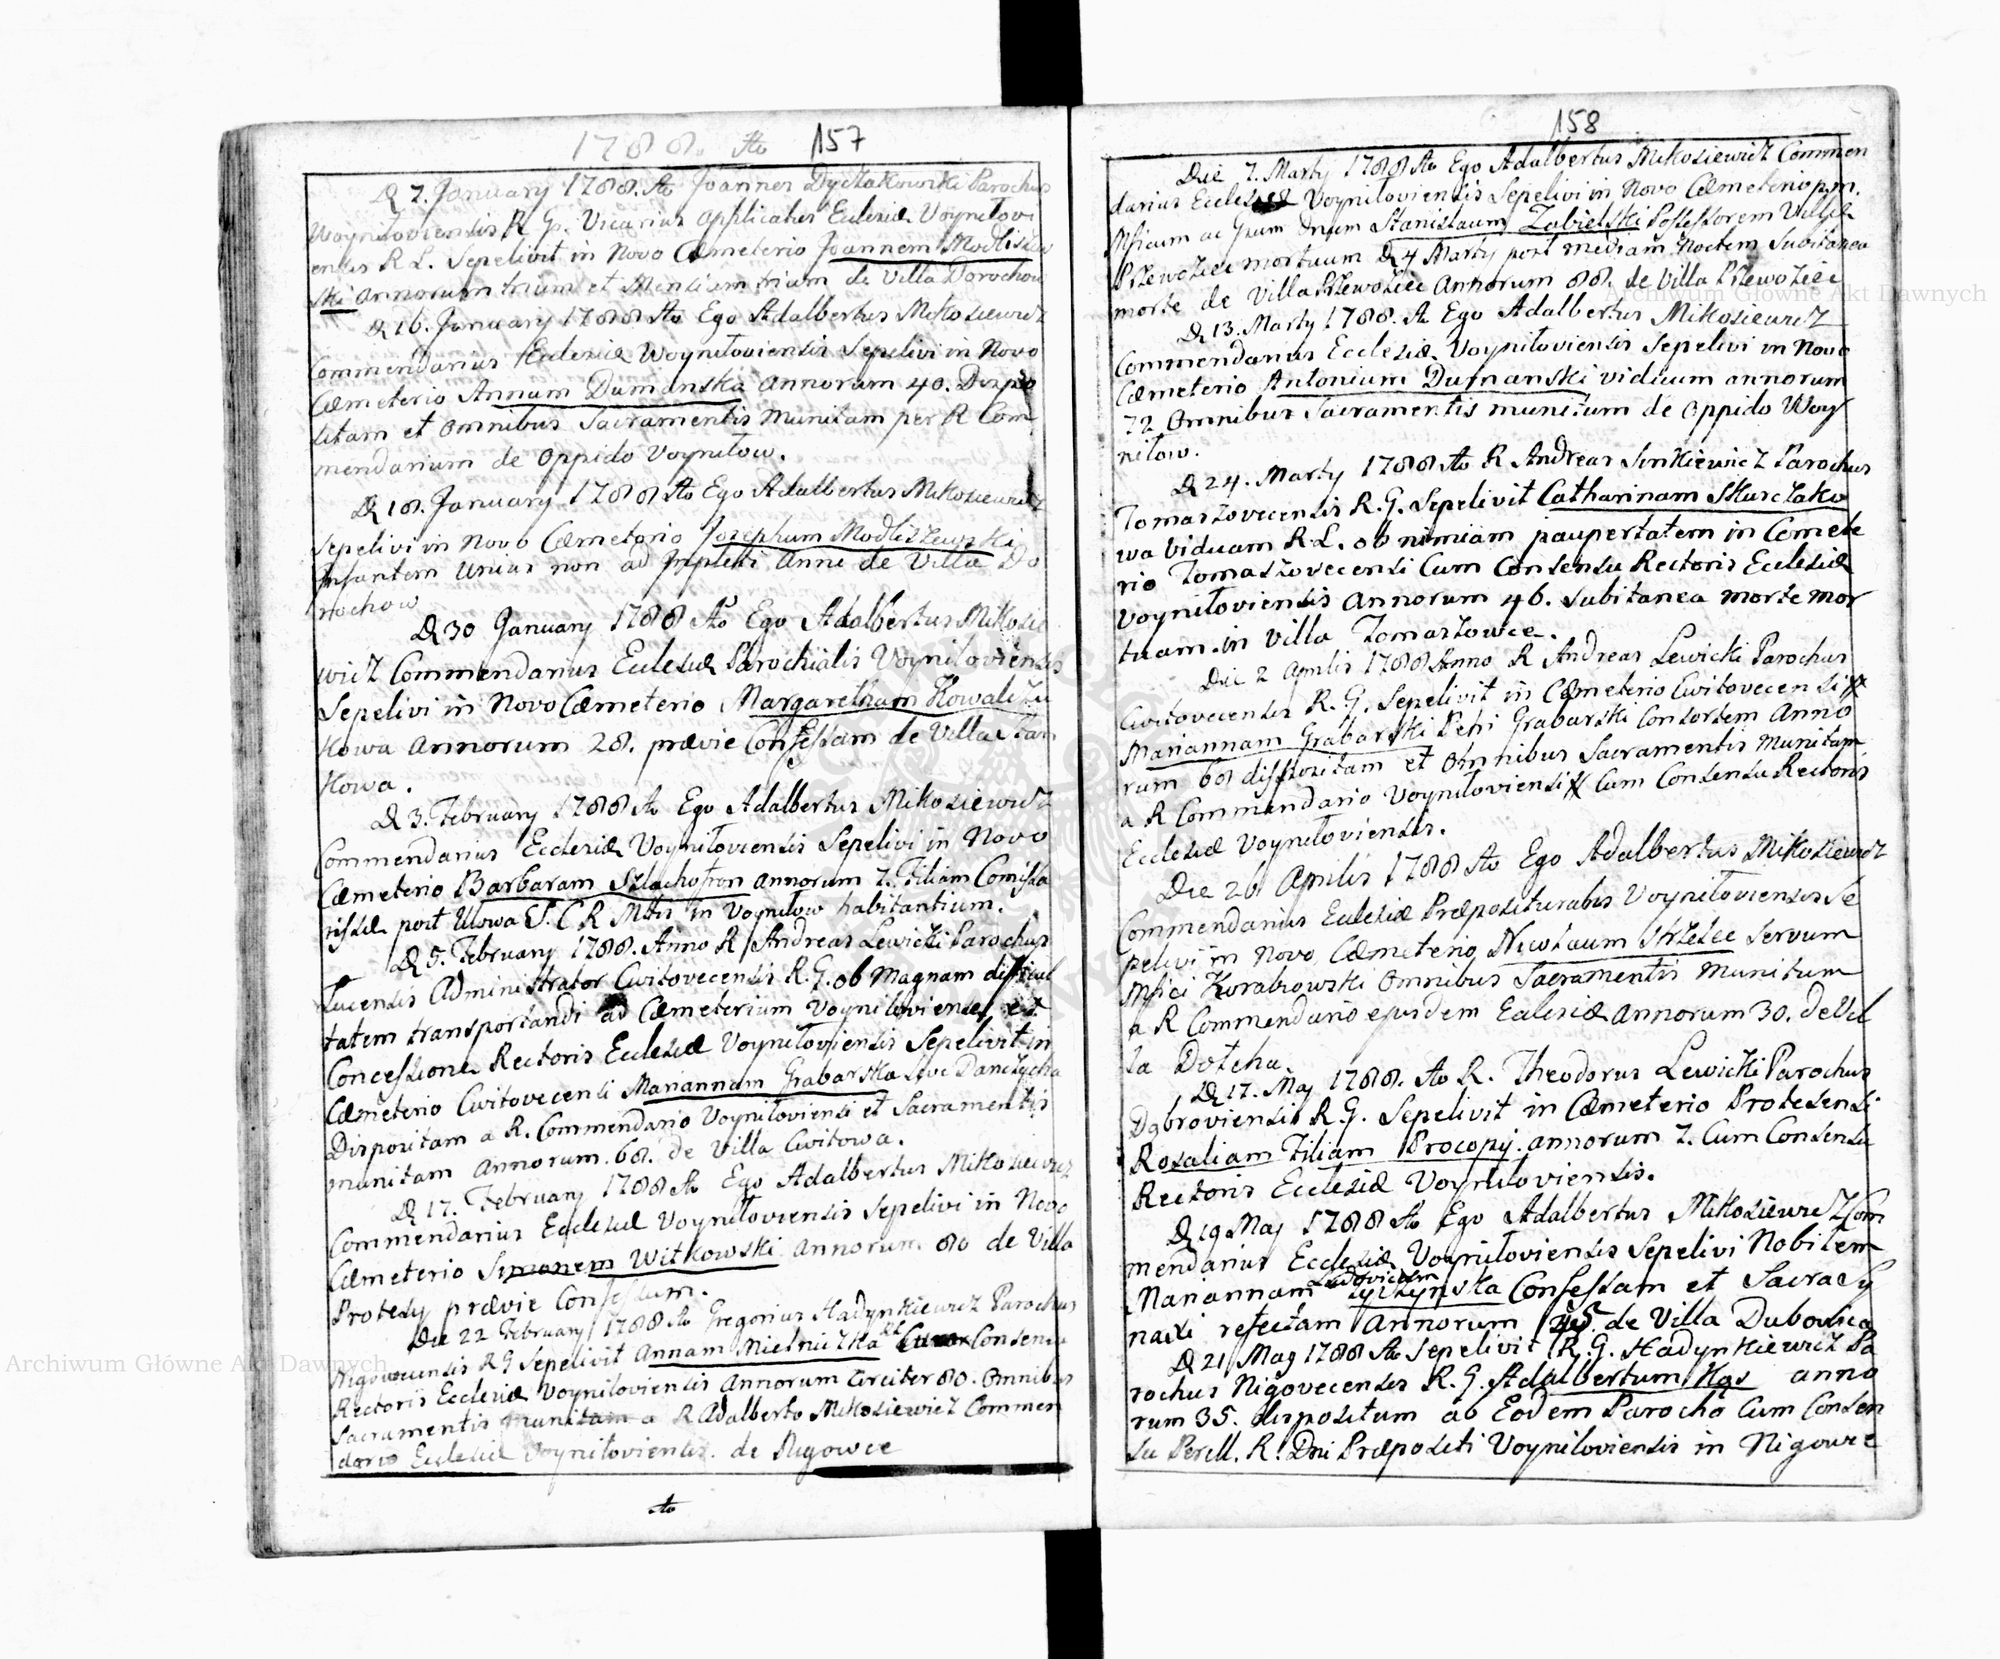 1788. Ao 157
D 7. January 1788. Ao Joannes Dyczakowski Parochus
Woyniloviensis R. G. Vicarius applicatus Eclesiæ Voynilovi
ensis R L. Sepelivit in Novo Cæmeterio Joannem Modliszew
ski annorum trium et Mensium trium de Villa Dorochow
D 16. January 1788 Ao Ego Adalbertus Mikosiewicz
Commendarius Ecclesiæ Woyniloviensis Sepelivi in Novo
Cæmeterio Annam Dumanska annorum 40. Dispo
sitam et omnibus Sacramentis munitam per R Com
mendarium de oppido Voynilow.
D 18. January 1788 Ao Ego Adalbertus Mikosiewicz
Sepelivi in Novo Cæmeterio Josephum Modliszewski
Infantem unius non ad Impleti Anni de Villa Do
rochow
D 30 January 1788 Ao Ego Adalbertus Mikosie
wicz Commendarius Eclesiæ Parochialis Voyniloviensis
Sepelivi in Novo Cæmeterio Margaretham Kowaliszu
kowa annorum 28. prævie Confessam de Villa Stan
kowa.
D 3. February 1788 Ao Ego Adalbertus Mikosiewicz
Commendarius Ecclesiæ Voyniloviensis Sepelivi in Novo
Cæmeterio Barbaram Szlachotron annorum 7. Filiam Comissa
rissæ post Ulowa S. C R Mtis in Voynilow habitantium.
D 5. February 1788. Anno R Andreas Lewicki Parochus
Lucensis Administrator Cwitovecensis R. G. ob Magnam difficul
tatem transportandi ad Cæmeterium Voyniloviense, ex
Concessione Rectoris Eclesiæ Voyniloviensis Sepelivit in
Cæmeterio Cwitovecensi Mariannam Grabarska sive Danczycha
Dispositam a R. Commendario Voyniloviensi et Sacramentis
munitam annorum. 68. de Villa Cwitowa.
D 17. February 1788 Ao Ego Adalbertus Mikosiewicz
Commendarius Ecclesiæ Voyniloviensis Sepelivi in Novo
Cæmeterio Simonem Witkowski annorum 80 de Villa
Protesy prævie Confessum.
Die 22 February 1788 Ao Gregorius Hadynkiewicz Parochus
Nigovecensis R G Sepelivit Annam Mielniczka Consensu
Rectoris Ecclesiæ Voyniloviensis annorum circiter 80. Omnibus
Sacramentis munitam a R Adalberto Mikosiewicz Commen
dario Eclesiæ Voyniloviensis. de Nigowce
Ao
158
Die 7. Marty 1788 Ao Ego Adalbertus Mikosiewicz Commen
darius Ecclesiæ Voyniloviensis Sepelivi in Novo Cæmeterio p.m.
Mficum ac Gsum Dnum Stanislaum Zabielski Possessorem Villæ
Przewoziec mortuum D 4 Marty post mediam Noctem Subitanea
morte de Villa Przewoziec Annorum 88. de Villa Przewoziec
D 13. Marty 1788. A Ego Adalbertus Mikosiewicz
Commendarius Ecclesiæ Voyniloviensis Sepelivi in Novo
Cæmeterio Antonium Dumanski viduum annorum
72 Omnibus Sacramentis munitum de oppido Woy
nilow.
D 24. Marty 1788 Ao R Andreas Sinkiewicz Parochus
Tomaszovecensis R. G. Sepelivit Catharinam Skurczako
wa viduam R L. ob nimiam paupertatem in Cemete
rio Tomaszovecensi Cum Consensu Rectoris Ecclesiæ
Voyniloviensis annorum 46. subitanea morte mor
tuam in Villa Tomaszowce.
Die 2 Aprilis 1788 Anno R Andreas Lewicki Parochus
Cwitovecensis R. G. Sepelivit in Cæmeterio Cwitovecensi
Mariannam Grabarski Petri Grabarski Consortem Anno
rum 68 disspositam et Omnibus Sacramentis munitam
a R Commendario Voyniloviensi Cum Consensu Rectoris
Ecclesiæ Voyniloviensis.
Die 20 Aprilis 1788 Ao Ego Adalbertus Mikosiewicz
Commendarius Eclesiæ Præposituralis Voyniloviensis Se
pelivi in Novo Cæmeterio Nicolaum Strzelec Servum
Mfici Korabiowski Omnibus Sacramentis Munitum
a R Commendario ejusdem Eclesiæ annorum 30. de Vil
la Dołcha.
D 17. May 1788. Ao R. Theodorus Lewicki Parochus
Dąbroviensis R. G. Sepelivit in Cæmeterio Protesensi
Rosaliam Filiam Procopy annorum 7. Cum Consensu
Rectoris Ecclesiæ Voyniloviensis.
D 19 May 1788 Ao Ego Adalbertus Mikosiewicz Com
mendarius Ecclesiæ Voyniloviensis Sepelivi Nobilem
Mariannam Ludovicam Zyczynska Confessam et Sacra Sy
naxi refectam Annorum 45. de Villa Dubovica
D 21 May 1788 Ao Sepelivit R. G. Hadynkiewicz Pa
rochus Nigovecensis R. G. Adalbertum Kęs anno
rum 35. dispositum ab Eodem Parocho Cum Consen
su Perill. R. Dni Præpositi Voyniloviensis in Nigowce
Archiwum Główne Akt Dawnych
Archiwum Główne Akt Dawnych